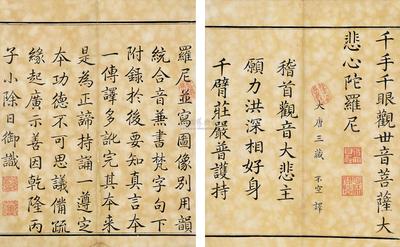 千手千眼觀世音菩薩大
悲心陀羅尼
大唐三藏不空譯
稽首觀音大悲主
願力洪深相好身
千臂莊嚴普護持
羅尼並寫圖像別用韻
統合音兼書梵字句下
附錄於後要知真言本
一傳譯多訛完其本来
是為正諦持誦一遵定
本功德不可思議備疏
緣起廣示善因乾隆丙
子小除日御識